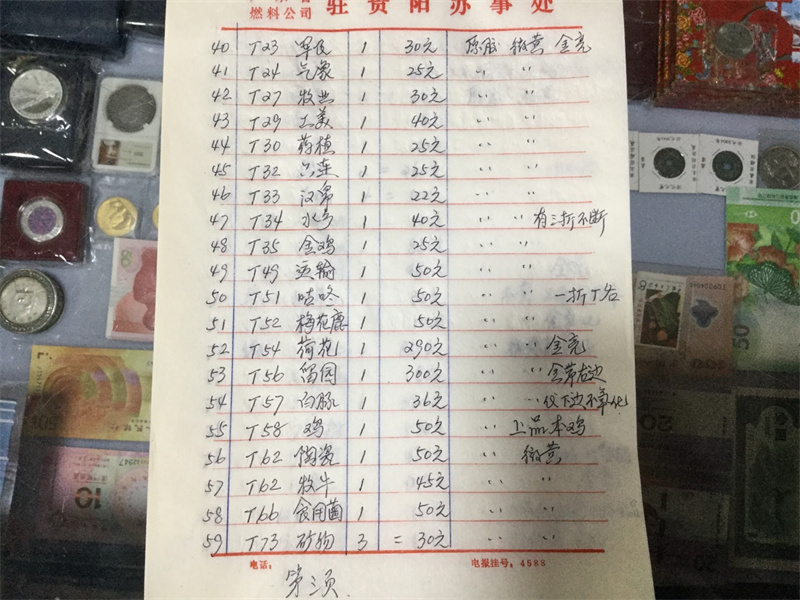 燃料公司 驻贵阳办事处
40 T23 军民 1 30元 原胶 微黄 金亮
41 T24 气象 1 25元 〃 〃
42 T27 牧业 1 30元 〃 〃
43 T29 工美 1 40元 〃 〃
44 T30 药植 1 25元 〃 〃
45 T32 六连 1 25元 〃 〃
46 T33 汉帛 1 22元 〃 〃
47 T34 水乡 1 40元 〃 〃 有三折不断
48 T35 金鸡 1 25元 〃 〃
49 T49 运输 1 50元 〃 〃
50 T51 咕咚 1 50元 〃 〃 一折丁右
51 T52 梅花鹿 1 50元 〃 〃
52 T54 荷花 1 290元 〃 〃 金亮
53 T56 留园 1 300元 〃 〃
54 T57 白豚 1 36元 〃 〃 仅下边不氧化
55 T58 鸡 1 50元 〃 上品本鸡
56 T62 陶瓷 1 50元 〃 微黄
57 T62 牧牛 1 45元 〃 〃
58 T66 食用菌 1 50元 〃 〃
59 T73 矿物 3 = 30元 〃 〃
电话: 电报挂号: 4588
第三页